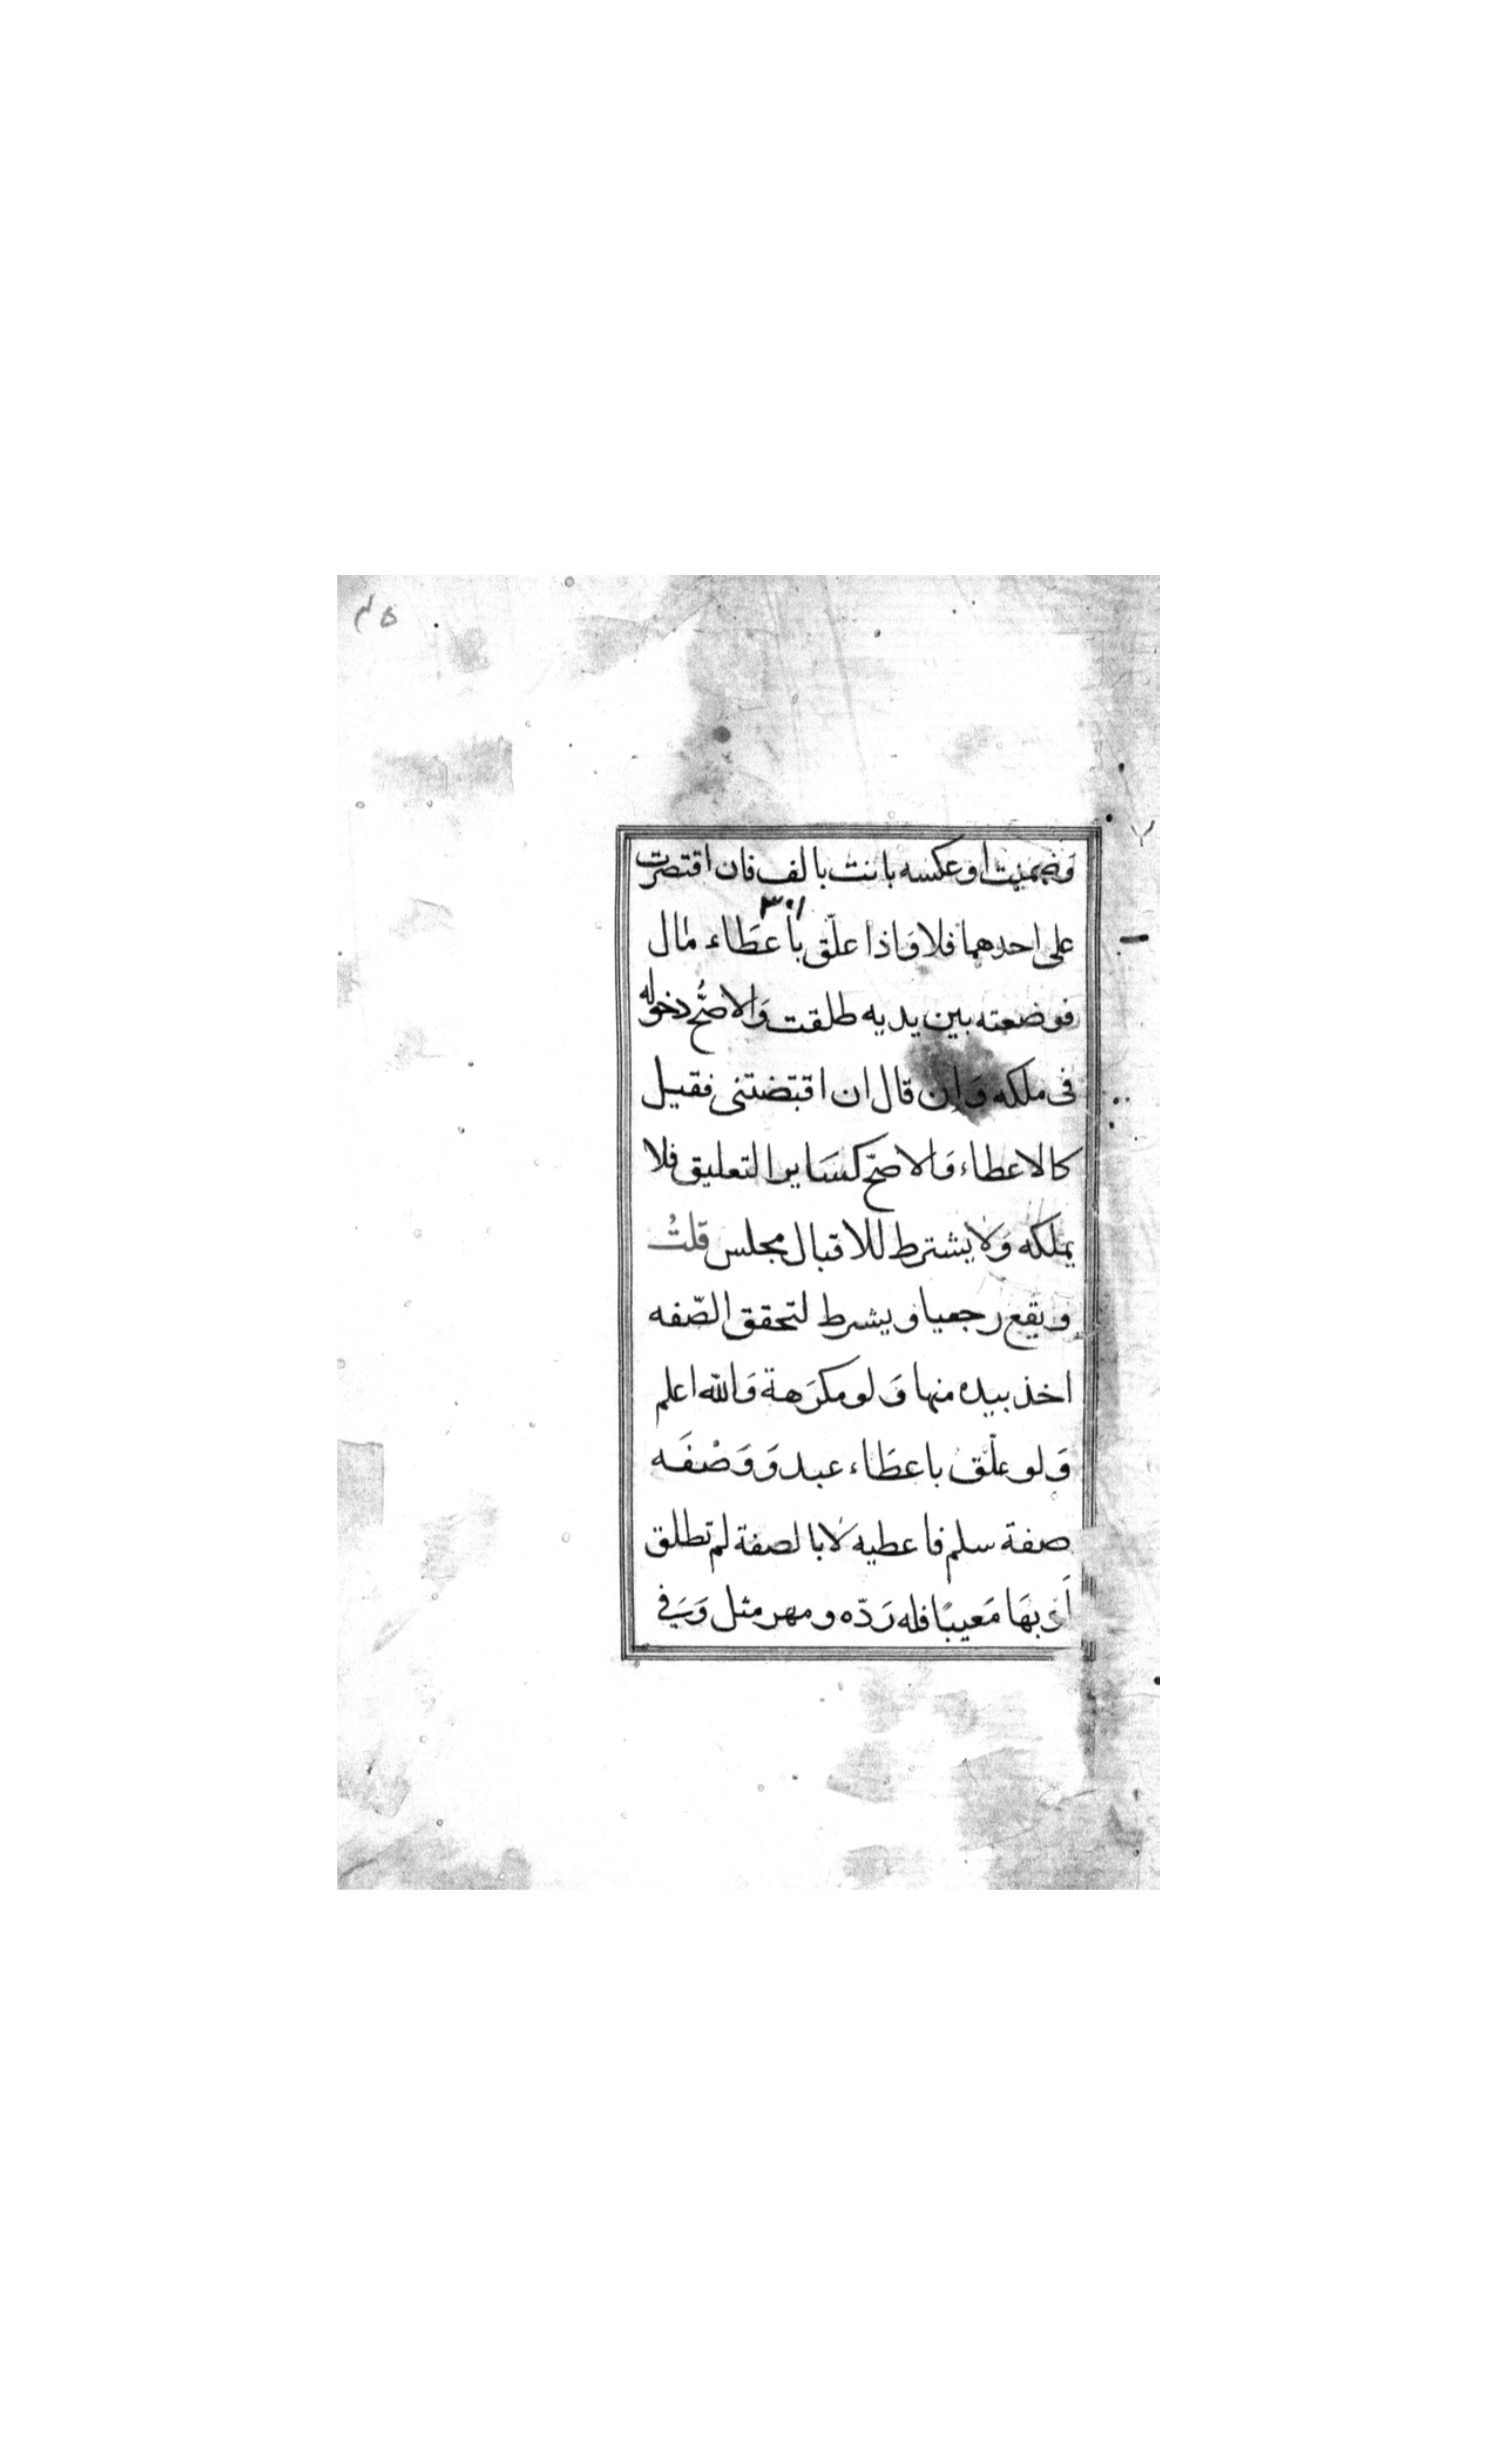 وضمنت او عكسه بانت بالف فان اقتصرت
٣٠١
على احدهما فلا وَاذا علّق باعطَاء مال
فوضعته بين يديه طلقت وَالاصحُّ دخوله
فى ملكه وَان قال ان اقبضتنى فقيل
كالاعطاء وَالاصحّ كسَاير التعليق فلا
يملكه وَلا يشترط للاقبال مجلس قلتُ
ويقع رجعيا ويشرط لتحقق الصّفه
اخذ بيده منها وَلو مكرَهة وَالله اعلم
وَلو علّق باعطَاء عبد وَوَصْفَه
صفة سلم فاعطيه لا بالصفة لم تطلق
اَو بهَا مَعيبًا فله رَدّه ومهر مثل وَفي